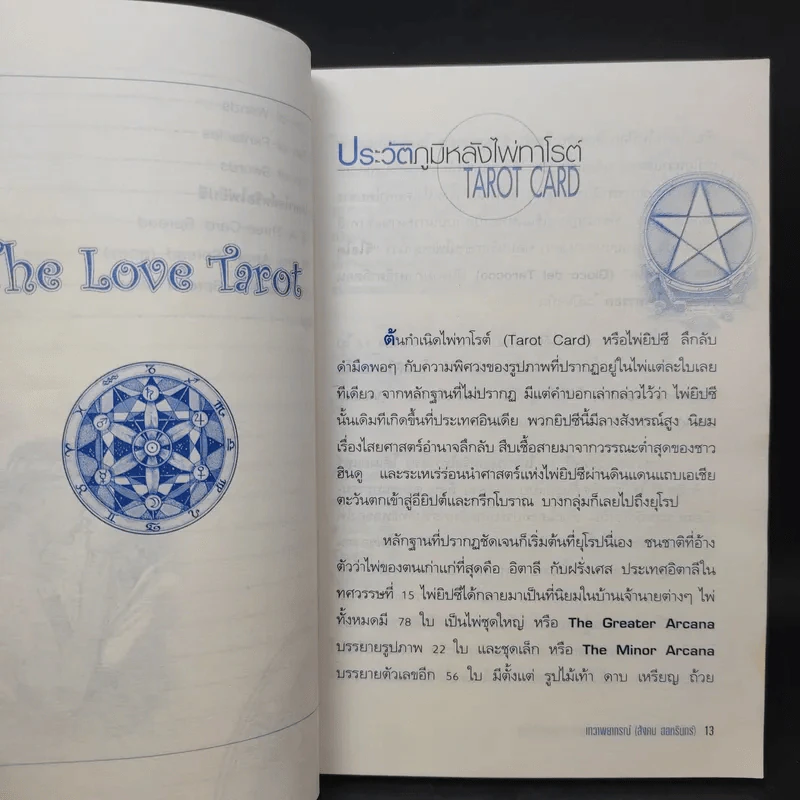 The Love Tarot
ประวัติภูมิหลังไพ่ทาโรต์
TAROT CARD
ต้นกำเนิดไพ่ทาโรต์ (Tarot Card) หรือไพ่ยิปซี ลึกลับ
ดำมืดพอๆ กับความพิศวงของรูปภาพที่ปรากฏอยู่ในไพ่แต่ละใบเลย
ทีเดียว จากหลักฐานที่ไม่ปรากฏ มีแต่คำบอกเล่ากล่าวไว้ว่า ไพ่ยิปซี
นั้นเดิมทีเกิดขึ้นที่ประเทศอินเดีย พวกยิปซีนี้มีลางสังหรณ์สูง นิยม
เรื่องไสยศาสตร์อำนาจลึกลับ สืบเชื้อสายมาจากวรรณะต่ำสุดของชาว
ฮินดู และระเหเร่ร่อนนำศาสตร์แห่งไพ่ยิปซีผ่านดินแดนแถบเอเชีย
ตะวันตกเข้าสู่อียิปต์และกรีกโบราณ บางกลุ่มก็เลยไปถึงยุโรป
หลักฐานที่ปรากฏชัดเจนก็เริ่มต้นที่ยุโรปนี่เอง ชนชาติที่อ้าง
ตัวว่าไพ่ของตนเก่าแก่ที่สุดคือ อิตาลี กับฝรั่งเศส ประเทศอิตาลีใน
ทศวรรษที่ 15 ไพ่ยิปซีได้กลายมาเป็นที่นิยมในบ้านเจ้านายต่างๆ ไพ่
ทั้งหมดมี 78 ใบ เป็นไพ่ชุดใหญ่ หรือ The Greater Arcana
บรรยายรูปภาพ 22 ใบ และชุดเล็ก หรือ The Minor Arcana
บรรยายตัวเลขอีก 56 ใบ มีตั้งแต่ รูปไม้เท้า ดาบ เหรียญ ถ้วย
เทวาพยากรณ์ (สังคม ฮอหรินทร์) 13